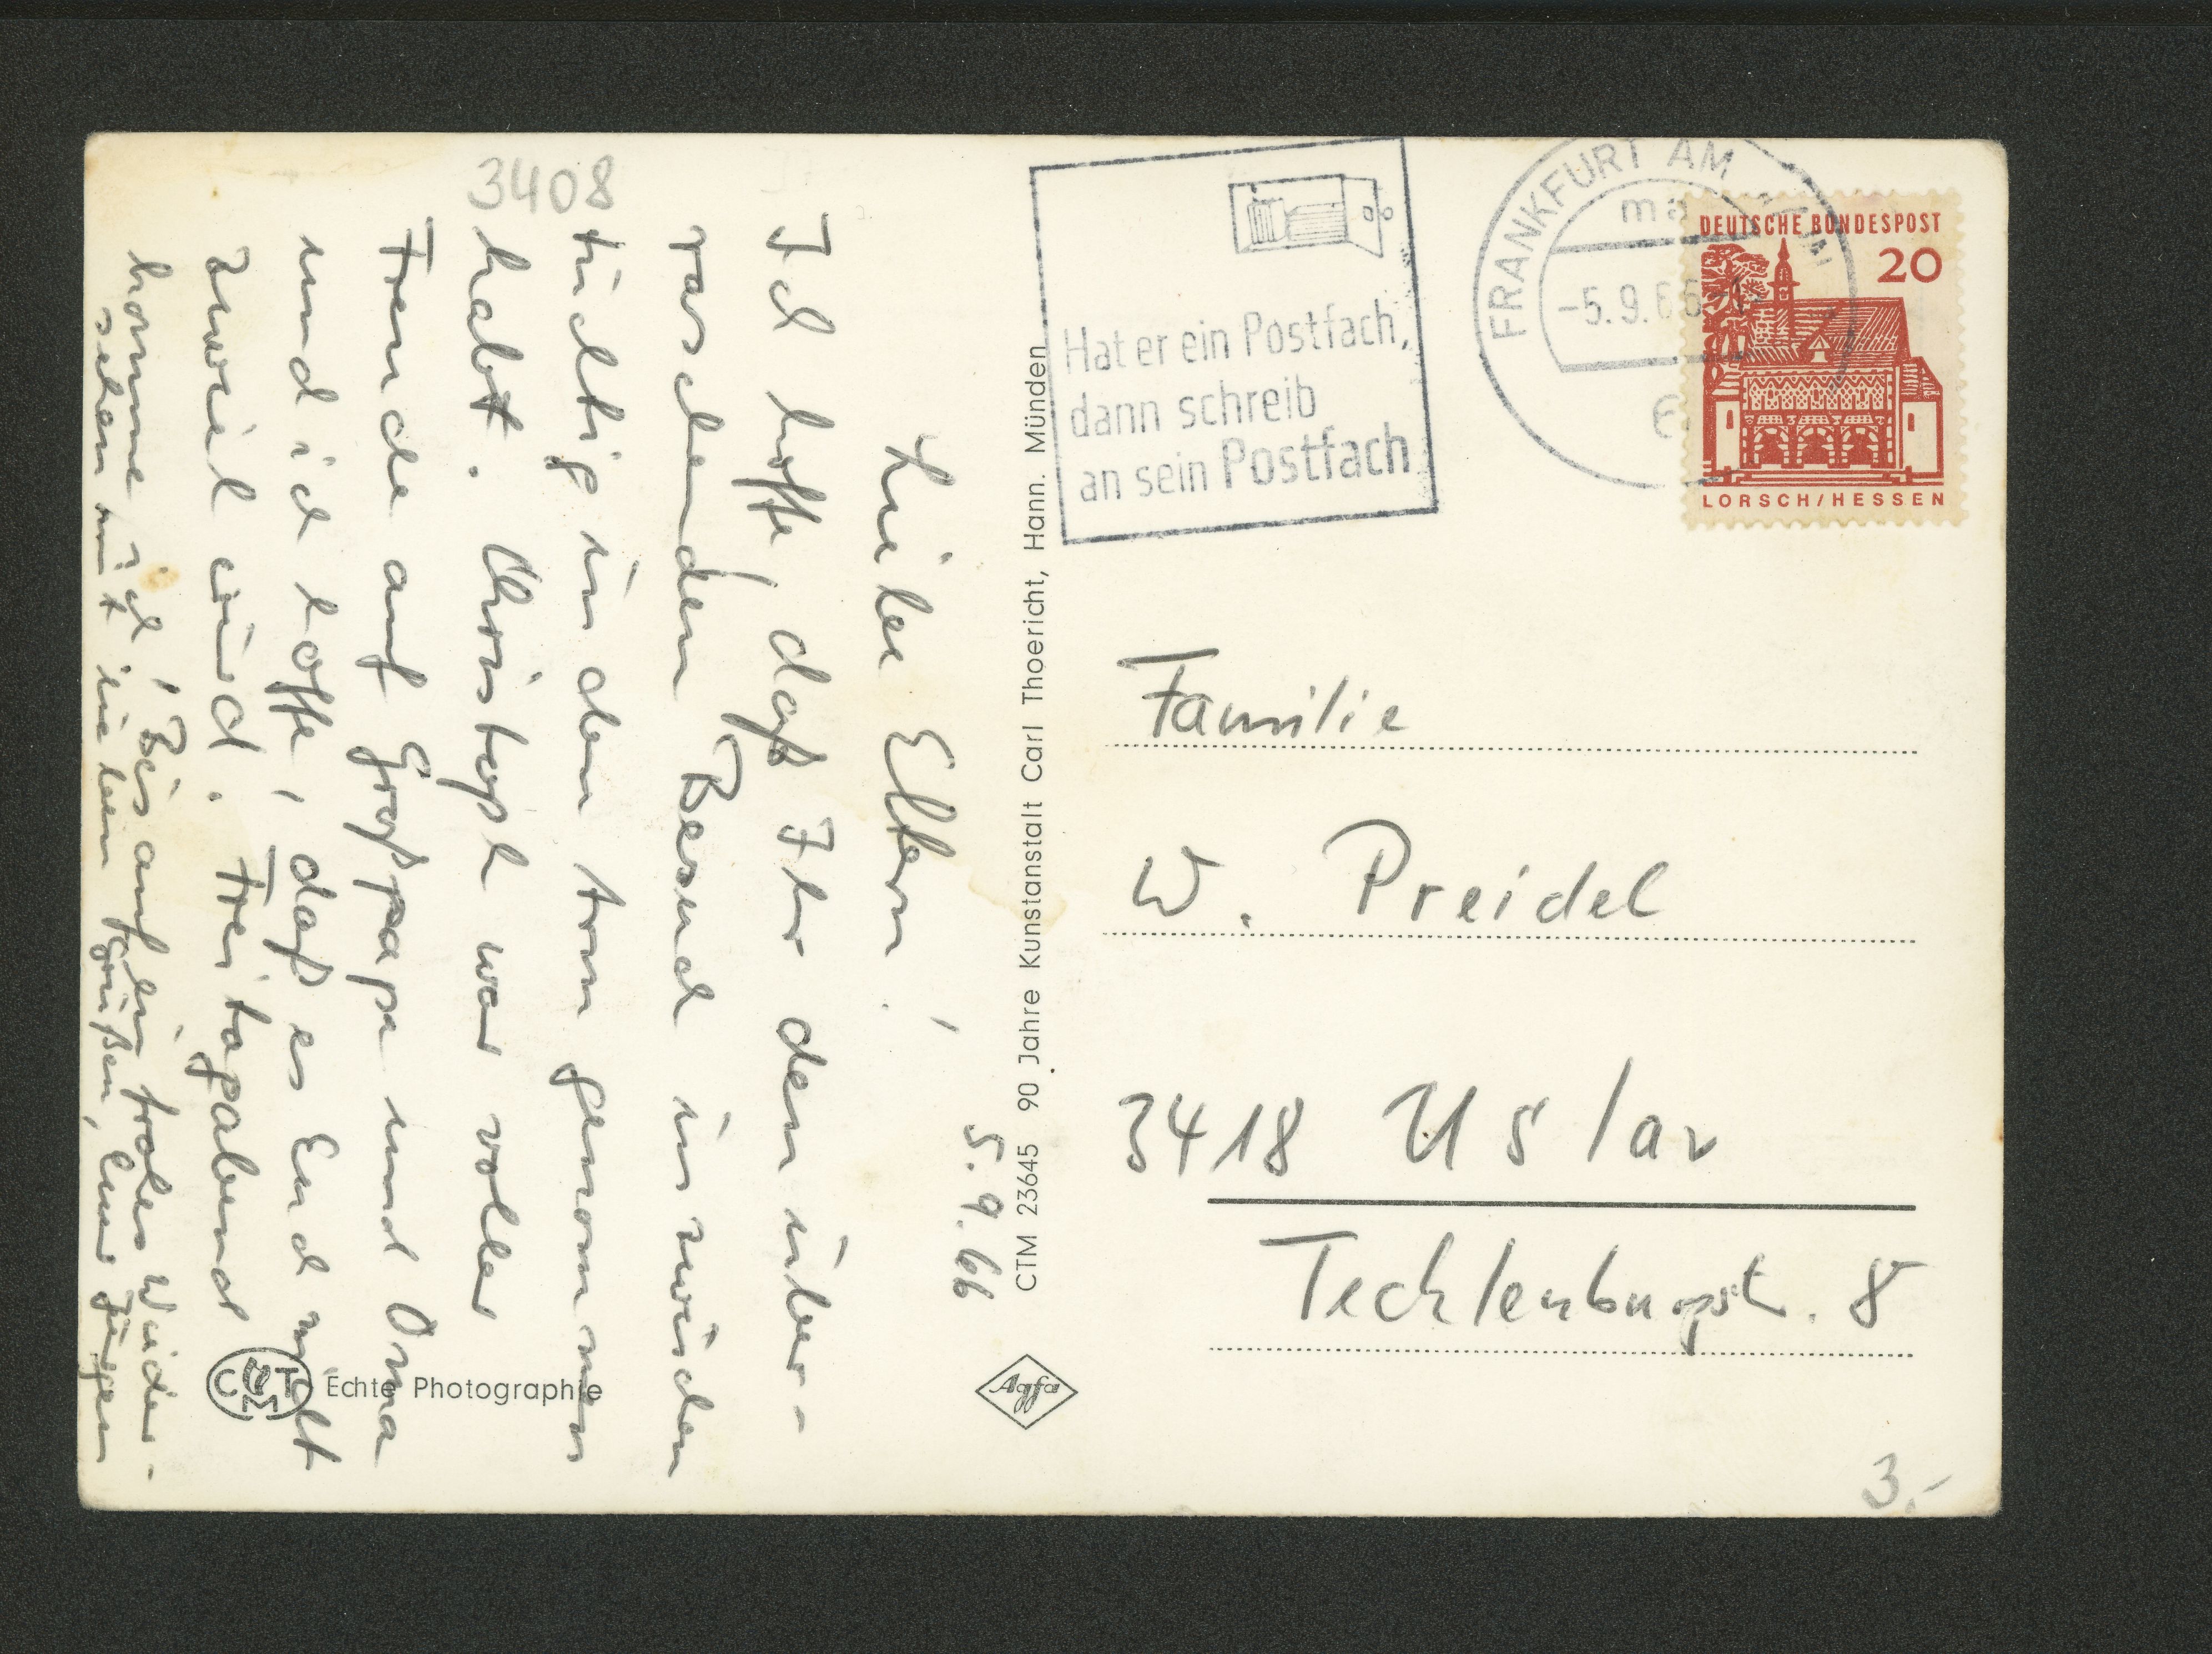 5.9.66
Liebe Eltern!
Ich hoffe, daß Ihr den über-
raschenden Besuch inzwischen
tüchtig in den Arm genommen
habt. Christoph war voller
Freude auf Großpapa und Oma
und ich hoffe, daß es Euch nicht
zuviel wird. Freitagabend
komme ich. Bis auf ein frohes Wieder-
sehen mit lieben Grüßen, Euer Jürgen
3408
Echte Photographie
CTM
CTM 23645 90 Jahre Kunstanstalt Carl Thoericht, Hann. Münden
Agfa
Hat er ein Postfach,
dann schreib
an sein Postfach
FRANKFURT AM MAIN
-5.9.66
DEUTSCHE BUNDESPOST
20
LORSCH/HESSEN
Familie
W. Preidel
3418 Uslar
Tecklenburgstr. 8
3,-